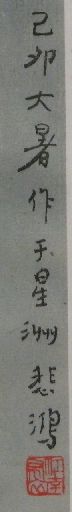 己卯大暑作于星洲悲鴻